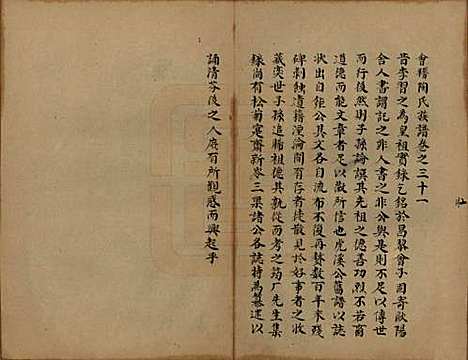 會稽陶氏族譜卷之三十一
昔李習之為皇祖實錄乞銘於昌黎曾子固寄歐陽
舍人書謂記之非人書之非公與是則不足以傳世
而行後然則子孫論譔其先祖之德善功烈不有蓄
道德而能文章者足以徵所信也虎溪公舊譜以誌
狀出自鉅公其文各自流布不復再贅數百年來殘
碑剝蝕遺籍湮淪間有存者徒散見於好事者之收
藏奕世子孫追維祖德其孰從而考之筠厂先生集
稼尚有松菊寔齋新岑三渠諸公各誌特為纂述以
誦清芬後之人庶有所觀感而興起乎